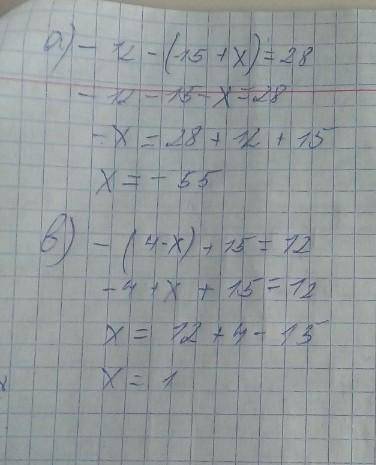 а) - 12 - (15 + x) = 28
- 12 - 15 - x = 28
- x = 28 + 12 + 15
x = - 55
в) - (4 - x) + 15 = 12
- 4 + x + 15 = 12
x = 12 + 4 - 15
x = 1